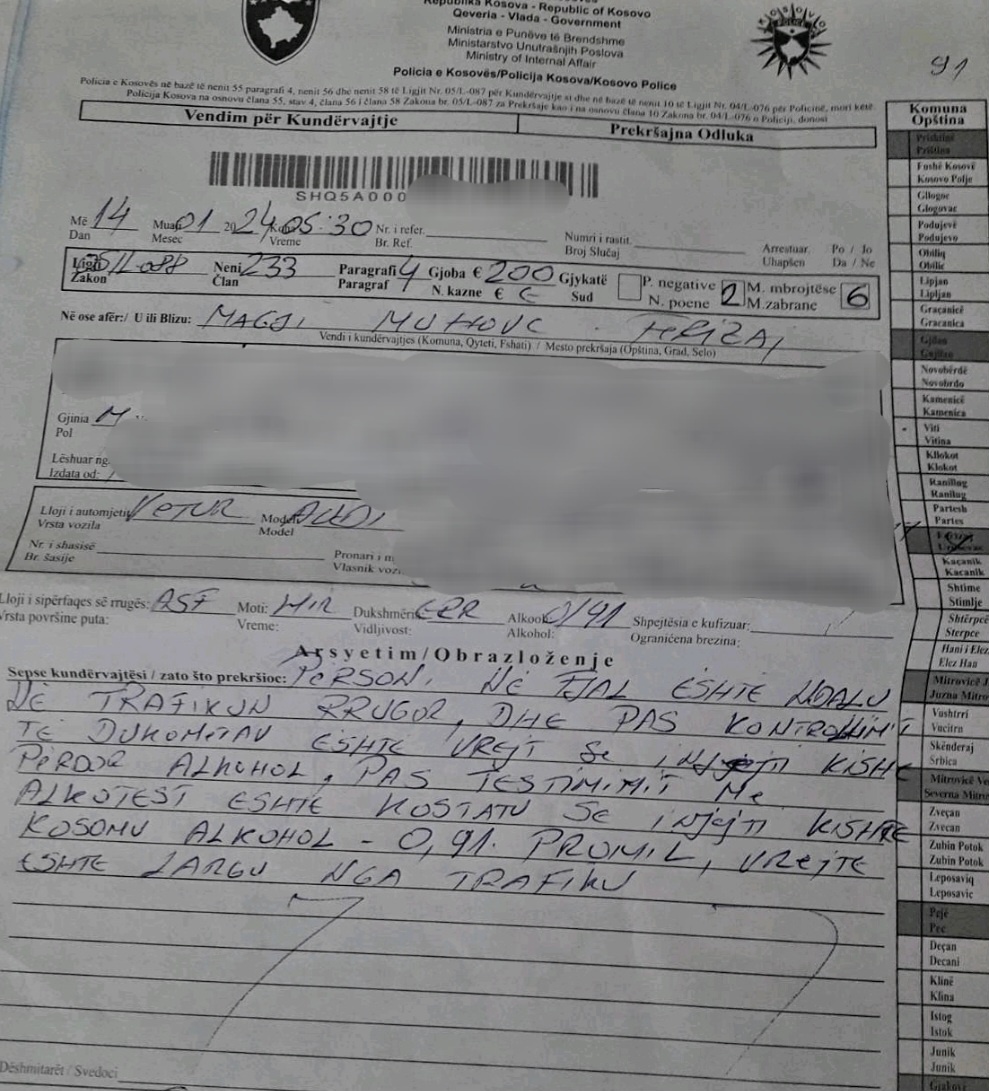 Republika Kosova - Republic of Kosovo
Qeveria - Vlada - Government
Ministria e Punëve të Brendshme
Ministarstvo Unutrašnjih Poslova
Ministry of Internal Affair
Policia e Kosovës/Policija Kosova/Kosovo Police
91
Policia e Kosovës në bazë të nenit 55 paragrafi 4, nenit 56 dhe nenit 58 të Ligjit Nr. 05/L-087 për Kundërvajtje si dhe në bazë të nenit 10 të Ligjit Nr. 04/L-076 për Policinë, mori këtë
Policija Kosova na osnovu člana 55, stav 4, člana 56 i člana 58 Zakona br. 05/L-087 za Prekršaje kao i na osnovu člana 10 Zakona br. 04/L-076 o Policiji, donosi
Vendim për Kundërvajtje Prekršajna Odluka
SHQ5A000
Më 14 Muaji 01 2024 05:30 Nr. i refer. Numri i rastit Arrestuar Po / Jo
Dan Mesec Vreme Br. Ref. Broj Slučaj Uhapšen Da / Ne
Ligji 05/L-088 Neni 233 Paragrafi 4 Gjoba € 200 Gjykatë P. negative 2 M. mbrojtëse 6
Zakon Član Paragraf N. kazne € € Sud N. poene M.zabrane
Në ose afër:/ U ili Blizu: MAGJ. MUHOVC
Vendi i kundërvajtjes (Komuna, Qyteti, Fshati) / Mesto prekršaja (Opština, Grad, Selo)
Gjinia M
Pol
Lëshuar ng.
Izdata od:
Lloji i automjetit VETUR Modeli AUDI
Vrsta vozila Model
Nr. i shasisë Pronari i m
Br. šasije Vlasnik vozi
Lloji i sipërfaqes së rrugës: ASF Moti: MIR Dukshmëria Alkool 0/91 Shpejtësia e kufizuar:
Vrsta površine puta: Vreme: Vidljivost: Alkohol: Ograničena brezina:
Arsyetim/Obrazloženje
Sepse kundërvajtësi / zato što prekršioc: PERSONI NË FJAL ËSHTË NDALU
NË TRAFIKUN RRUGOR, DHE PAS KONTROLLIMIT
TË DUKOMETAV ËSHTË VREJT SE INJEJTI KISHE
PËRDOR ALKOHOL, PAS TESTIMIT ME
ALKOTEST ËSHTË KOSTATU SE INJEJTI KISHTE
KOSOMU ALKOHOL - 0,91. PROMIL, VREJTE
ËSHTË LARGU NGA TRAFIKU
Dëshmitarët / Svedoci
Komuna
Opština
Prishtinë
Priština
Fushë Kosovë
Kosovo Polje
Gllogoc
Glogovac
Podujevë
Podujevo
Obiliq
Obilic
Lipjan
Lipljan
Graçanicë
Gracanica
Gjilan
Gnjilan
Novobërdë
Novobrdo
Kamenicë
Kamenica
Viti
Vitina
Kllokot
Klokot
Ranillug
Ranilug
Partesh
Partes
Ferizaj
Uroševac
Kaçanik
Kacanik
Shtime
Stimlje
Shtërpcë
Sterpce
Hani i Elez
Elez Han
Mitrovicë J
Juzna Mitro
Vushtrri
Vucitrn
Skënderaj
Srbica
Mitrovicë Ve
Severna Mitro
Zveçan
Zvecan
Zubin Potok
Zubin Potok
Leposaviq
Leposavic
Pejë
Pec
Deçan
Decani
Klinë
Klina
Istog
Istok
Junik
Junik
Gjakovë